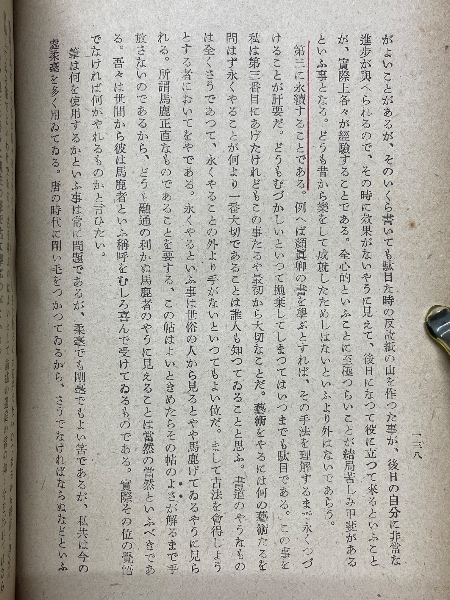 がよいことがあるが、そのいくら書いても駄目な時の反故紙の山を作つた事が、後日の自分に非常な
進歩が與へられるので、その時に效果がないそうに見えて、後日になつて役に立つて來るといふこと
が、實際上各々が經驗することである。全心的といふことに至極つらいことが結局苦しみ甲斐がある
といふ事となる。どうも昔から樂をして成就したためしはないといふより外にないであらう。
第三に永續することである。例へば顏眞卿の書を學ぶとすれば、その手法を理解するまで永くつづ
けることが肝要だ。どうもむづかしいといつて抛棄してしまつてはいつまでも駄目である。この事を
私は第三番目にあげたけれどもこの事たるや最初から大切なことだ。藝術をやるには何の藝術たるを
問はず永くやることが何より一番大切であることは誰人も知つてゐることと思ふ。書道のやうなもの
は全くさうであつて、永くやることの外より手がないといつてもよい位だ。まして古法を會得しよう
とする者においてをやである。永くやるといふ事は世俗の人から見るとやや馬鹿げてゐるやうに見ら
れる。所謂馬鹿正直なものであることを要する、この帖はよいときめたらその帖のよさが解るまで手
放さないのであるから、どうも融通の利かぬ馬鹿者のやうに見えることは當然の當然といふべきであ
る。吾々は世間から彼は馬鹿者といふ稱呼をむしろ喜んで受けてゐるものである。實際その位の覺悟
でなければ何がやれるものかと言ひたい。
筆は何を使用するかといふ事は常に問題であるが、柔毫でも剛毫でもよい筈であるが、私共は今の
處柔毫を多く用ゐてゐる。唐の時代に剛い毛をつかつてゐるから、さうでなければならぬなどといふ
一二八